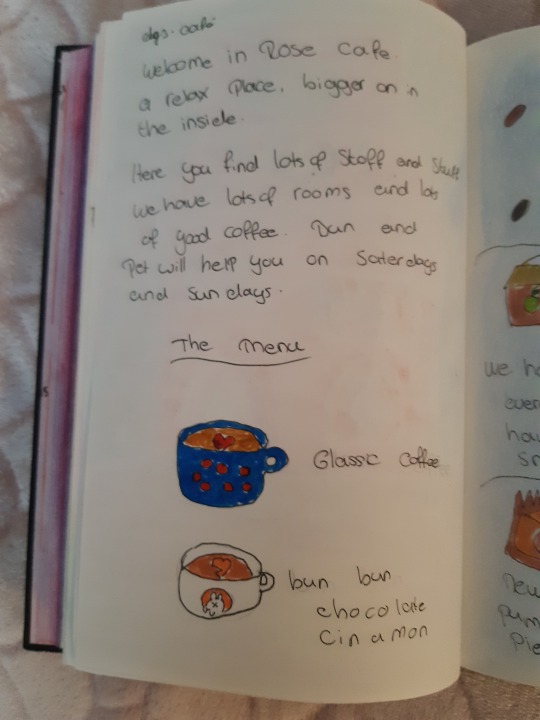 Welcome in Rose Cafe.
a relax Place, bigger on in
the inside.
Here you find lots of Stoff and Stuff
we have lots of rooms and lots
of good coffee. Dun and
Pet will help you on Saterdays
and Sundays.
The Menu
Glassic Coffee
bun bun
chocolate
Cinamon
we